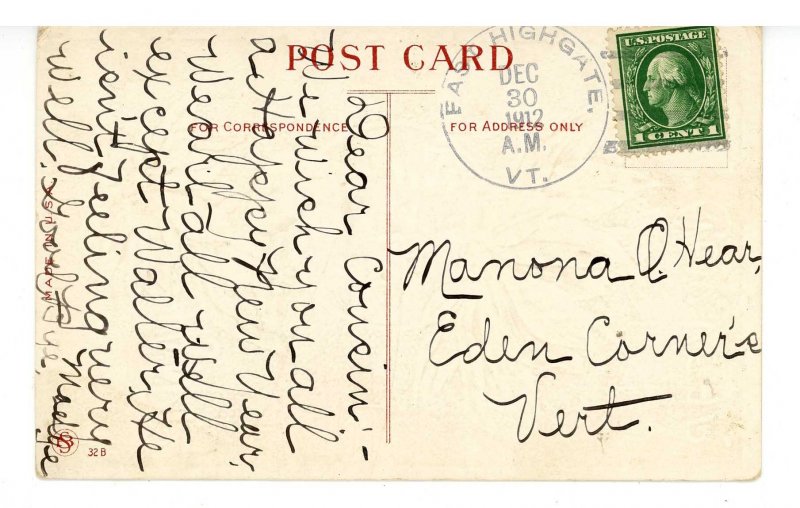 POST CARD
FOR CORRESPONDENCE
FOR ADDRESS ONLY
EAST HIGHGATE,
DEC
30
1912
A.M.
VT.
U.S. POSTAGE
1 CENT 1
Dear Cousin -
We wish you all
a Happy New Year.
We are all well
except Walter he
isn't feeling very
well. Good Bye,
Madge
Manona O. Hear,
Eden Corner's
Vert.
MADE IN U.S.A.
32 B